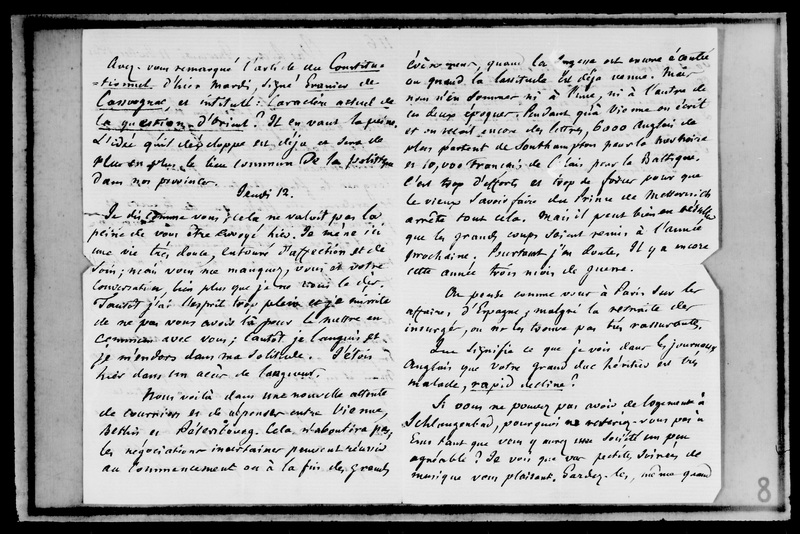 Avez-vous remarqué l'article du Constitu-
-tionnel d'hier mardi, signé Granier de
Cassagnac, et intitulé: Caractère actuel de
la question d'Orient? Il en vaut la peine.
L'idée qu'il développe est déjà et sera de
plus en plus le lieu commun de la politique
dans nos provinces.
Jeudi 12.
Je dis comme vous; cela ne valait pas la
peine de vous être envoyé hier. Je mène ici
une vie très douce, entouré d'affection et de
soin; mais vous me manquez, vous et votre
conversation, bien plus que je ne vous le dis.
Tantôt j'ai l'esprit trop plein et je m'irrite
de ne pas vous avoir là pour le mettre en
commun avec vous; tantôt je languis et
je m'endors dans ma solitude. J'étois
hier dans un accès de langueur.
Nous voilà dans une nouvelle attente
de courriers et de réponses entre Vienne,
Berlin et Pétersbourg. Cela n'aboutira pas,
les négociations incertaines peuvent réussir
au commencement ou à la fin des grands
évènemens, quand la sagesse est encore écoutée
ou quand la lassitude est déjà venue. Mais
nous n'en sommes ni à l'une, ni à l'autre de
ces deux époques. Pendant qu'à Vienne on écrit
et on reçoit encore des lettres, 6000 Anglais de
plus partent de Southampton pour la mer noire
et 10,000 Français de Calais pour la Baltique.
C'est trop d'efforts et trop de forces pour que
le vieux savoir faire du Prince de Metternich
arrête tout cela. Mais il peut bien en résulter
que les grands coups soient remis à l'année
prochaine. Pourtant j'en doute. Il y a encore
cette année trois mois de guerre.
On pense comme vous à Paris sur les
affaires d'Espagne; malgré la retraite des
insurgés, on ne les trouve pas très rassurantes.
Que signifie ce que je vois dans les journaux
Anglais que votre grand duc héritier est très
malade, rapid decline?
Si vous ne pouvez pas avoir de logement à
Schlangenbad, pourquoi ne resteriez-vous pas à
Ems tant que vous y aurez une société un peu
agréable? Je vois que vos petites soirées de
musique vous plaisent. Gardez-les, même quand
8